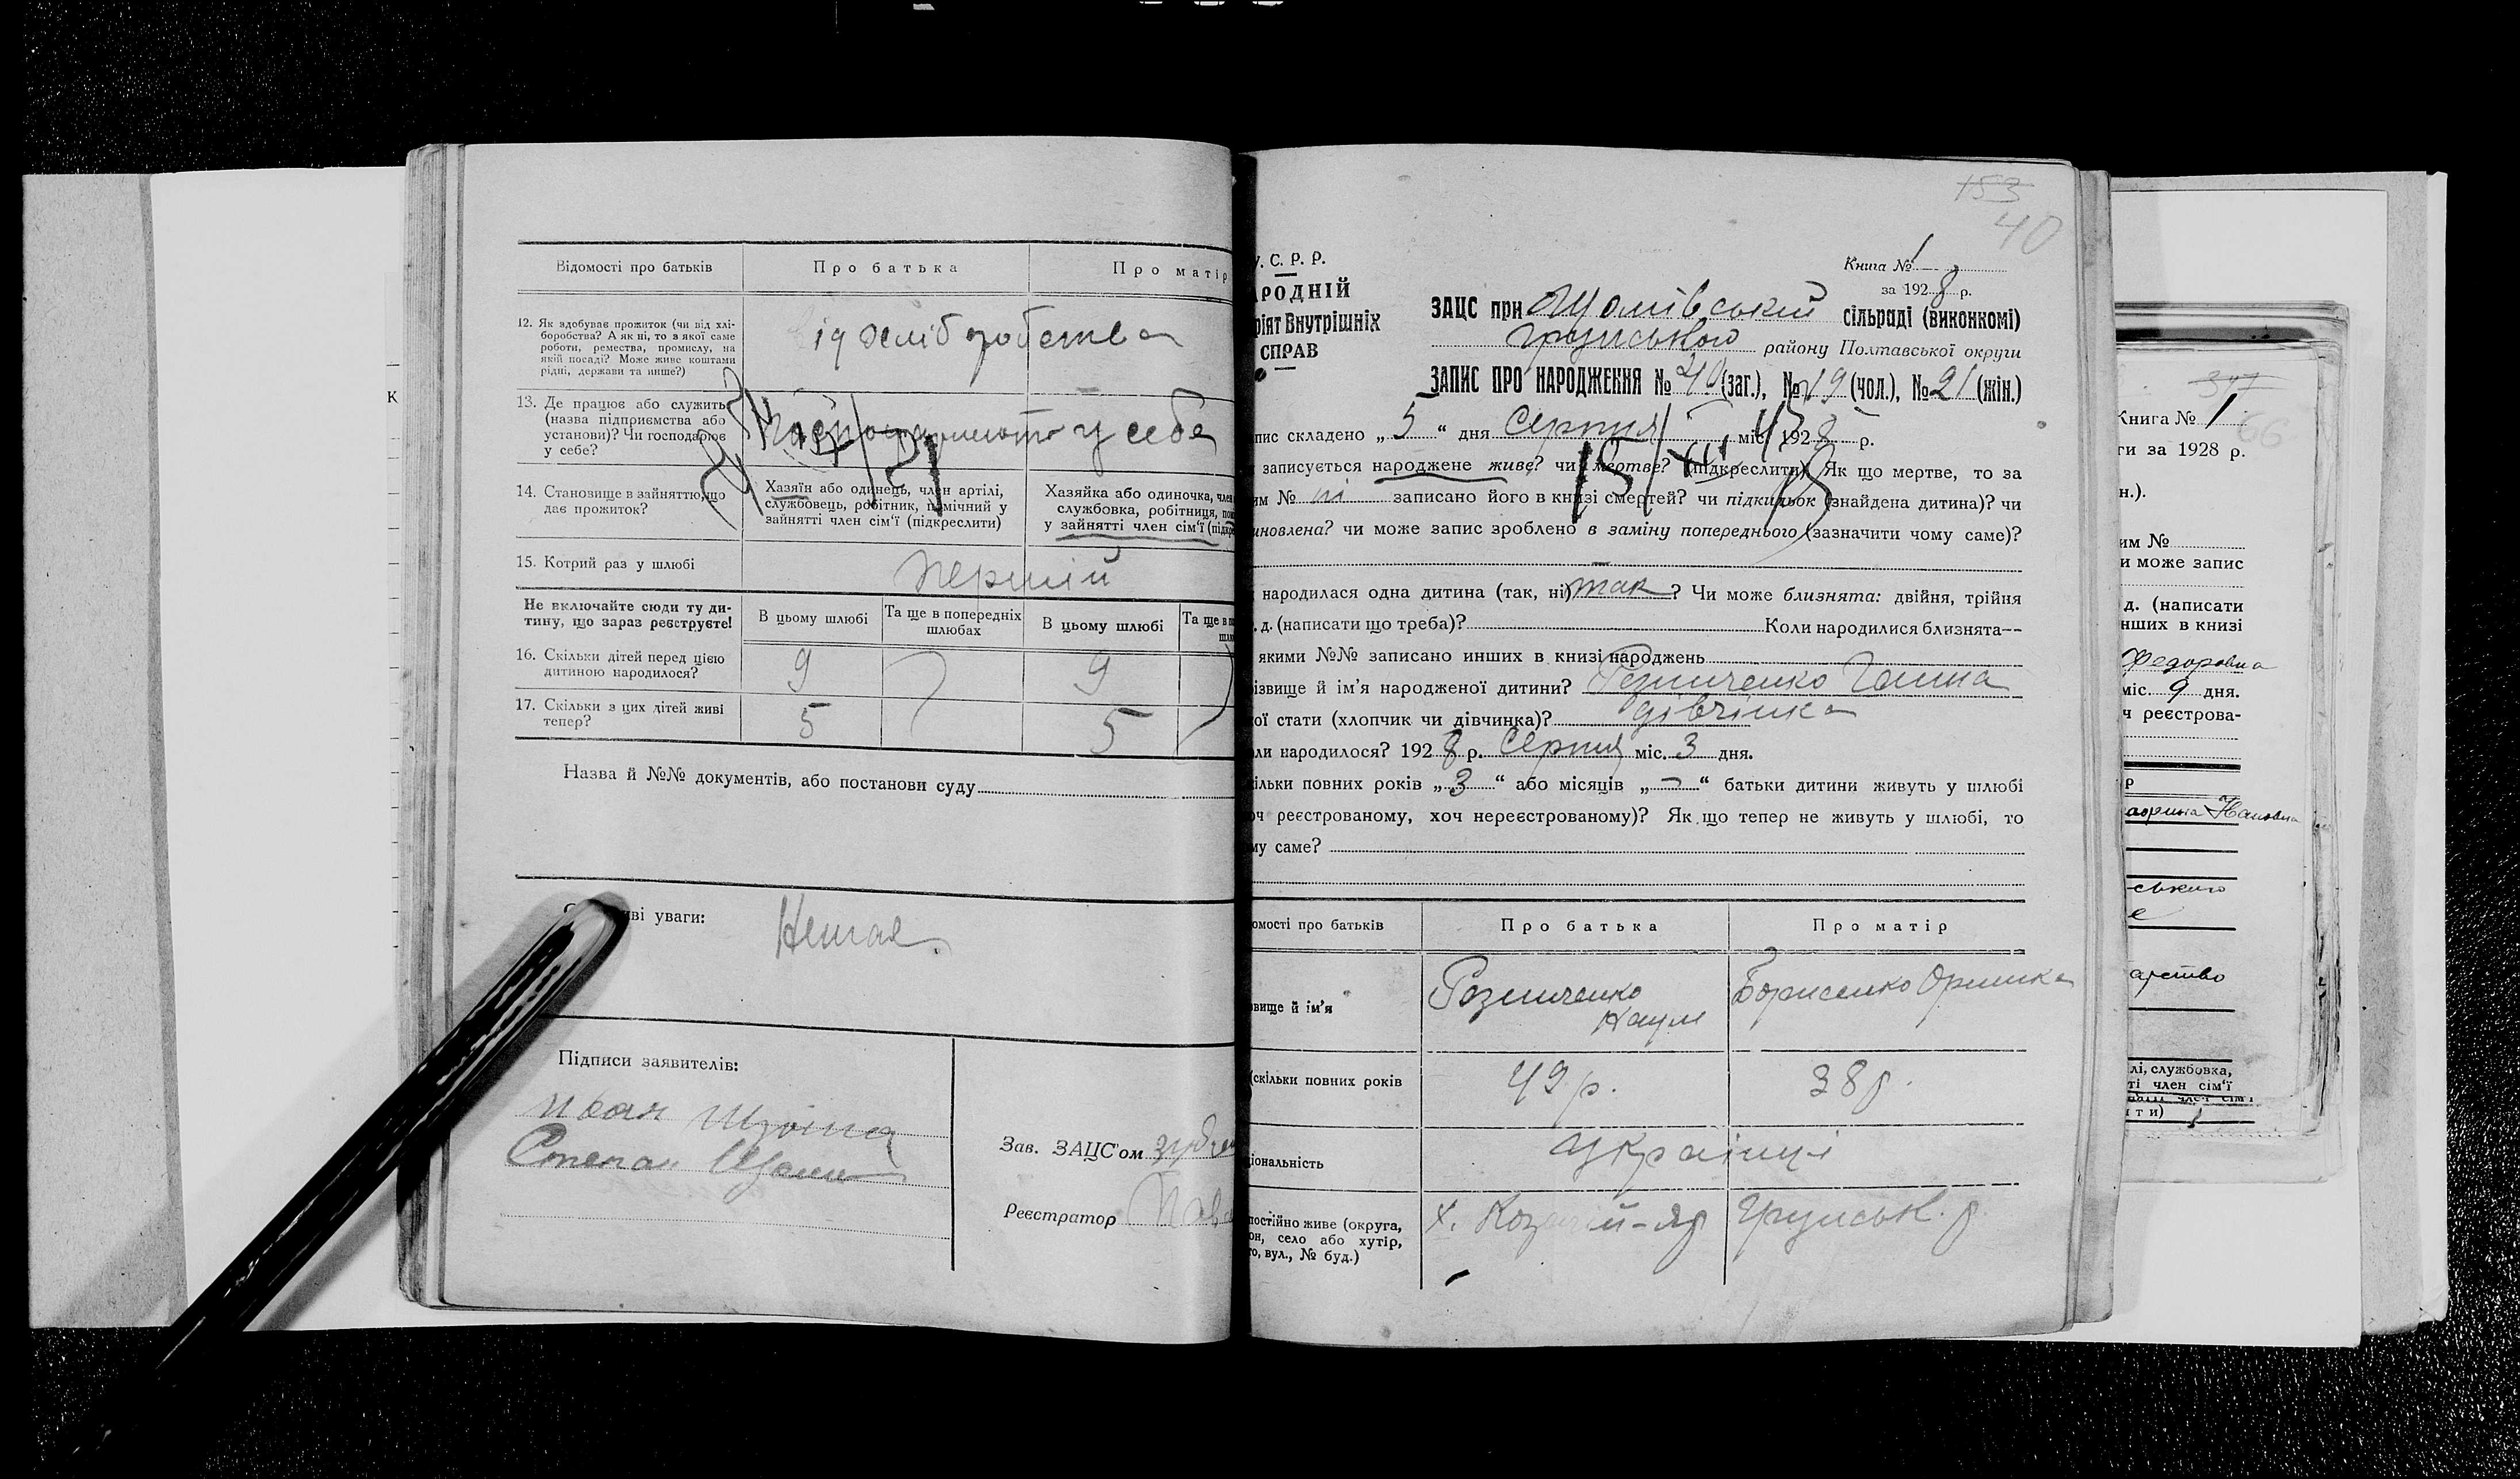 Відомості про батьків
Про батька
Про матір
12. Як здобуває прожиток (чи від хлі-
боробства? А як ні, то з якої саме
роботи, ремества, промислу, на
якій посаді? Може живе коштами
рідні, держави та инше?)
13. Де працює або служить
(назва підприємства або
установи)? Чи господарює
у себе?
у себе
14. Становище в зайняттю, що
дає прожиток?
Хазяїн або одинець, член артілі,
службовець, робітник, помічний у
зайнятті член сім'ї (підкреслити)
Хазяйка або одиночка, член
службовка, робітниця,
у зайнятті член сім'ї
15. Котрий раз у шлюбі
Перший
Не включайте сюди ту ди-
тину, що зараз реєструєте!
В цьому шлюбі
Та ще в попередніх
шлюбах
В цьому шлюбі
Та ще в
16. Скільки дітей перед цією
дитиною народилося?
9
9
17. Скільки з цих дітей живі
тепер?
5
5
Назва й №№ документів, або постанови суду
уваги:
Немає
Підписи заявителів:
Іван
Степан
Зав. ЗАЦС'ом
Реєстратор
153
40
У. С. Р. Р.
РОДНІЙ
ріят Внутрішніх
СПРАВ
Книга № 1
за 1928 р.
ЗАЦС при сільраді (виконкомі)
Грунського району Полтавської округи
ЗАПИС ПРО НАРОДЖЕННЯ № 40 (заг.), № 19 (чол.), № 21 (жін.)
пис складено „5“ дня Серпня міс. 1928 р.
записується народжене живе? чи мертве? (підкреслити) Як що мертве, то за
им № ні записано його в книзі смертей? чи підкидьок (знайдена дитина)? чи
новлена? чи може запис зроблено в заміну попереднього (зазначити чому саме)?
народилася одна дитина (так, ні) так? Чи може близнята: двійня, трійня
. д. (написати що треба)? Коли народилися близнята—
якими №№ записано инших в книзі народжень
ізвище й ім'я народженої дитини? Резниченко Ганна
ої стати (хлопчик чи дівчинка)? дівчинка
ли народилося? 1928 р. Серпня міс. 3 дня.
ільки повних років „3“ або місяців „—“ батьки дитини живуть у шлюбі
оч реєстрованому, хоч нереєстрованому)? Як що тепер не живуть у шлюбі, то
му саме?
омості про батьків
Про батька
Про матір
звище й ім'я
Резниченко
Наум
Борисенко Оришка
(скільки повних років
49 р.
38 р.
ціональність
Українці
постійно живе (округа,
он, село або хутір,
то, вул., № буд.)
х. Козачий-яр Грунськ. р.
347
66
Книга № 1
ги за 1928 р.
н.).
им №
и може запис
д. (написати
нших в книзі
Федоровна
міс. 9 дня.
ч реєстрова-
р
ського
е
арство
лі, службовка,
ті член сім'ї
ити)